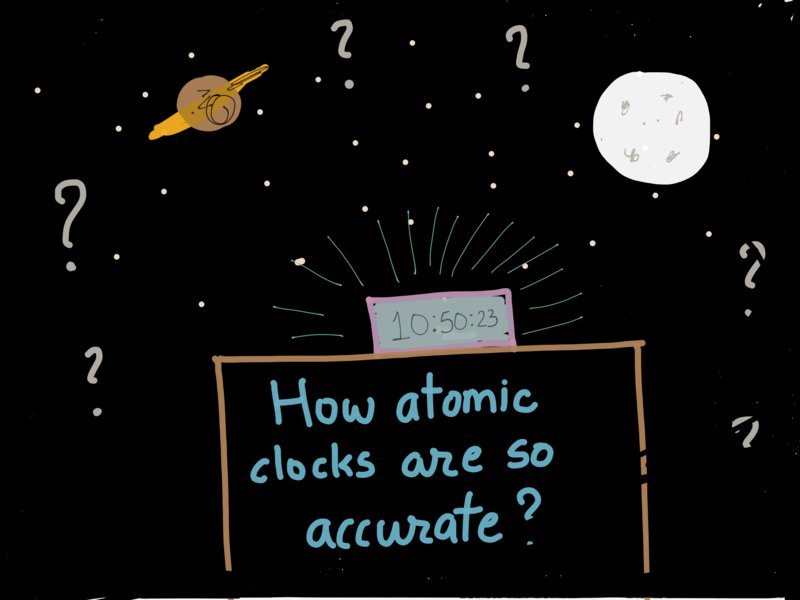 ?
?
?
?
?
?
10:50:23
How atomic
clocks are so
accurate?